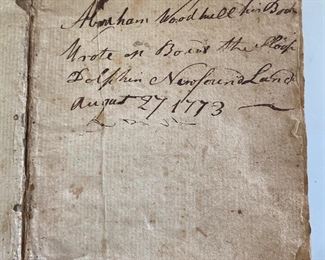 Abraham Woodwell his Book
Wrote on Board the Sloop
Dolphin Newfound Land
August 27 1773